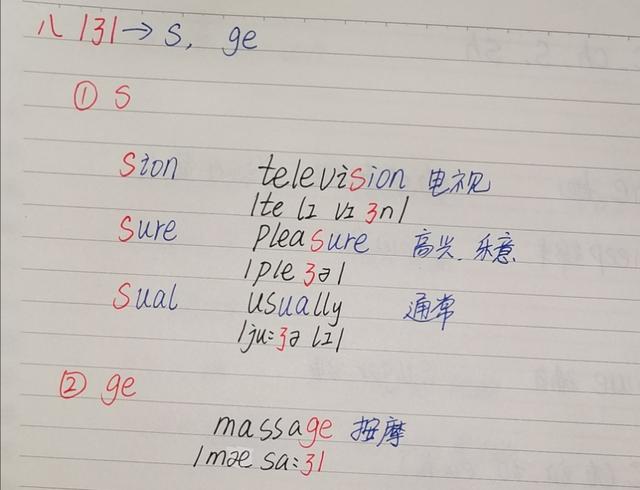 八 /ʒ/→ s, ge
① s
sion television 电视
/te lɪ vɪ ʒn/
sure pleasure 高兴、乐意
/ple ʒə/
sual usually 通常
/ju:ʒə lɪ/
② ge
massage 按摩
/mæ sa:ʒ/